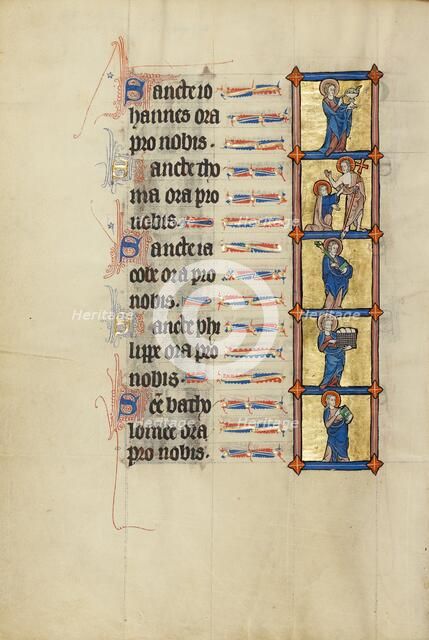 Sancte io
hannes ora
pro nobis.
Sancte tho
ma ora pro
nobis.
Sancte ia
cobe ora pro
nobis.
Sancte phi
lippe ora pro
nobis.
Sce bartho
lomee ora
pro nobis.
Heritage Heritage Heritage
Heritage Heritage Heritage
Heritage Heritage Heritage